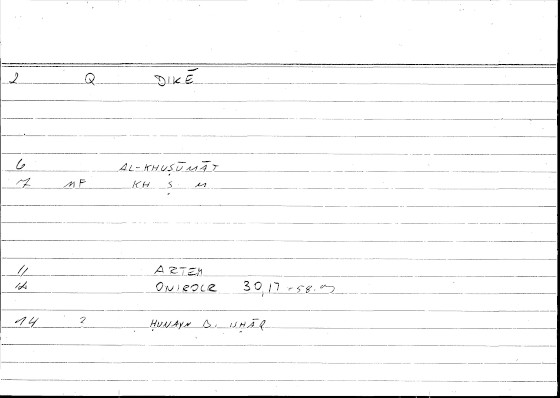 2 Q DIKĒ
6 AL-KHUṢŪMĀT
7 MP KH Ṣ M
11 ARTEM
12 ONIROCR 30,17-58.
14 ? ḤUNAYN B. ISḤĀQ